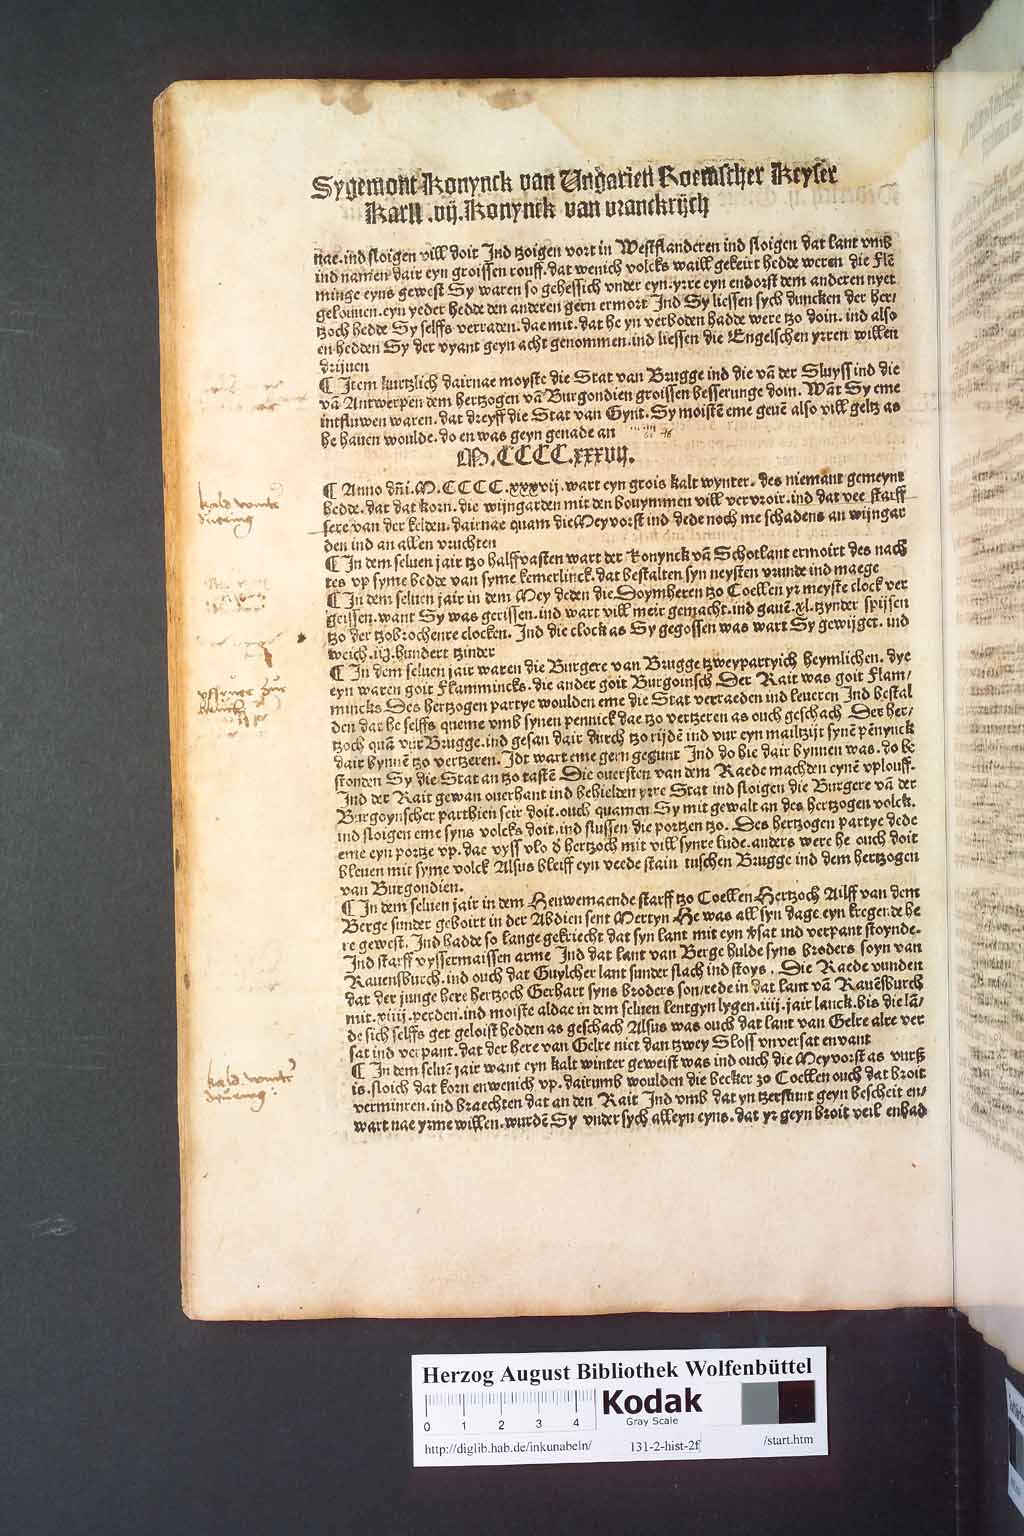 Sygemont Konynck van Ungarien Roemscher Keyser
Karll .vij. Konynck van vranckrijch
nae. ind sloigen vill doit Ind tzoigen vort in Westflanderen ind sloigen dat lant vmb
ind namen dair eyn groissen rouff. dat wenich volcks waill gekeirt hedde weren die Flē
minge eyns gewest Sy waren so gehessich vnder eyn. yrre eyn endorst dem anderen nyet
gelouuen. eyn yeder hedde den anderen gern ermort Ind Sy liessen sych duncken der her/
tzoch hedde Sy selffs verraden. dae mit. dat he yn verboden hadde were tzo doin. ind also
en hedden Sy der vyant geyn acht genommen. ind liessen die Engelschen yrren willen
drijuen
¶ Item kurtzlich dairnae moyste die Stat van Brugge ind die vā der Sluyss ind die
vā Antwerpen dem hertzogen vā Burgondien groissen besserunge doin. Wāt Sy eme
intfluwen waren. dat dreyff die Stat van Gynt. Sy moistē eme geuē also vill geltz as
he hauen woulde. do en was geyn genade an
M.CCCC.xxxvij.
¶ Anno dñi. M.CCCC.xxxvij. wart eyn grois kalt wynter. des niemant gemeynt
hedde. dat dat korn. die wijngarden mit den bouymmen vill vervroir. ind dat vee starff
sere van der kelden. dairnae quam die Meyvorst ind dede noch me schadens an wijngar
den ind an allen vruchten
¶ In dem seluen jair tzo halffvasten wart der Konynck vā Schotlant ermoirt des nach
tes vp syme bedde van syme kemerlinck. dat bestalten syn neysten vrunde ind maege
¶ In dem seluen jair in dem Mey deden die Doymheren tzo Coellen yr meyste clock ver
geissen. want Sy was gerissen. ind wart vill meir gemacht. ind gauē .xl. tzynder spijsen
tzo der tzobrochenre clocken. Ind die clock as Sy gegossen was wart Sy gewijget. ind
weich .iij. hundert tzinder
¶ In dem seluen jair waren die Burgere van Brugge tzweypartyich heymlichen. dye
eyn waren goit Flammincks. die ander goit Burgoinsch Der Rait was goit Flam/
mincks Des hertzogen partye woulden eme die Stat verraeden ind leueren Ind bestal
den dat he selffs queme vmb synen pennick dae tzo vertzeren as ouch geschach Der her/
tzoch quā vur Brugge. ind gesan dair durch tzo rijdē ind vur eyn mailtzijt synē pēnynck
dair bynnē tzo vertzeren. Idt wart eme gern gegunt Ind do hie dair bynnen was. do be
stonden Sy die Stat an tzo tastē Die ouersten van dem Raede machden eynē vplouff.
Ind der Rait gewan ouerhant ind behielden yrre Stat ind sloigen die Burgere vā der
Burgoynscher parthien seir doit. ouch quamen Sy mit gewalt an des hertzogen volck.
ind sloigen eme syns volcks doit. ind slussen die portzen tzo. Des hertzogen partye dede
eme eyn portze vp. dae vyss vlo d hertzoch mit vill synre lude. anders were he ouch doit
bleuen mit syme volck Alsus bleiff eyn veede stain tuschen Brugge ind dem hertzogen
van Burgondien.
¶ In dem seluen jair in dem Heuwemaende starff tzo Coellen Hertzoch Ailff van dem
Berge sunder geboirt in der Abdien sent Mertyn He was all syn dage eyn kregende he
re gewest. Ind hadde so lange gekriecht dat syn lant mit eyn vsat ind verpant stoynde.
Ind starff vyssermaissen arme Ind dat lant van Berge hulde syns broders soyn van
Rauensburch. ind ouch dat Guylcher lant sunder slach ind stoys. Die Raede vunden
dat der junge here hertzoch Gerhart syns broders son/rede in dat lant vā Rauēsburch
mit .viiij. perden. ind moiste aldae in dem seluen lentgyn lygen .iiij. jair lanck. bis die lā/
de sich selffs get geloist hedden as geschach Alsus was ouch dat lant van Gelre alre ver
sat ind verpant. dat der here van Gelre niet dan tzwey Sloss vnversat envant
¶ In dem seluē jair want eyn kalt winter geweist was ind ouch die Meyvorst as vurß
is. sloich dat korn enwenich vp. dairumb woulden die becker zo Coellen ouch dat broit
verminren. ind braechten dat an den Rait Ind vmb dat yn tzerstunt geyn bescheit en/
wart nae yrme willen. wurdē Sy vnder sych alleyn eyns. dat yr geyn broit veil enhad
kald wintr
kald wintr
Herzog August Bibliothek Wolfenbüttel
0 1 2 3 4
Kodak
Gray Scale
http://diglib.hab.de/inkunabeln/ 131-2-hist-2f /start.htm